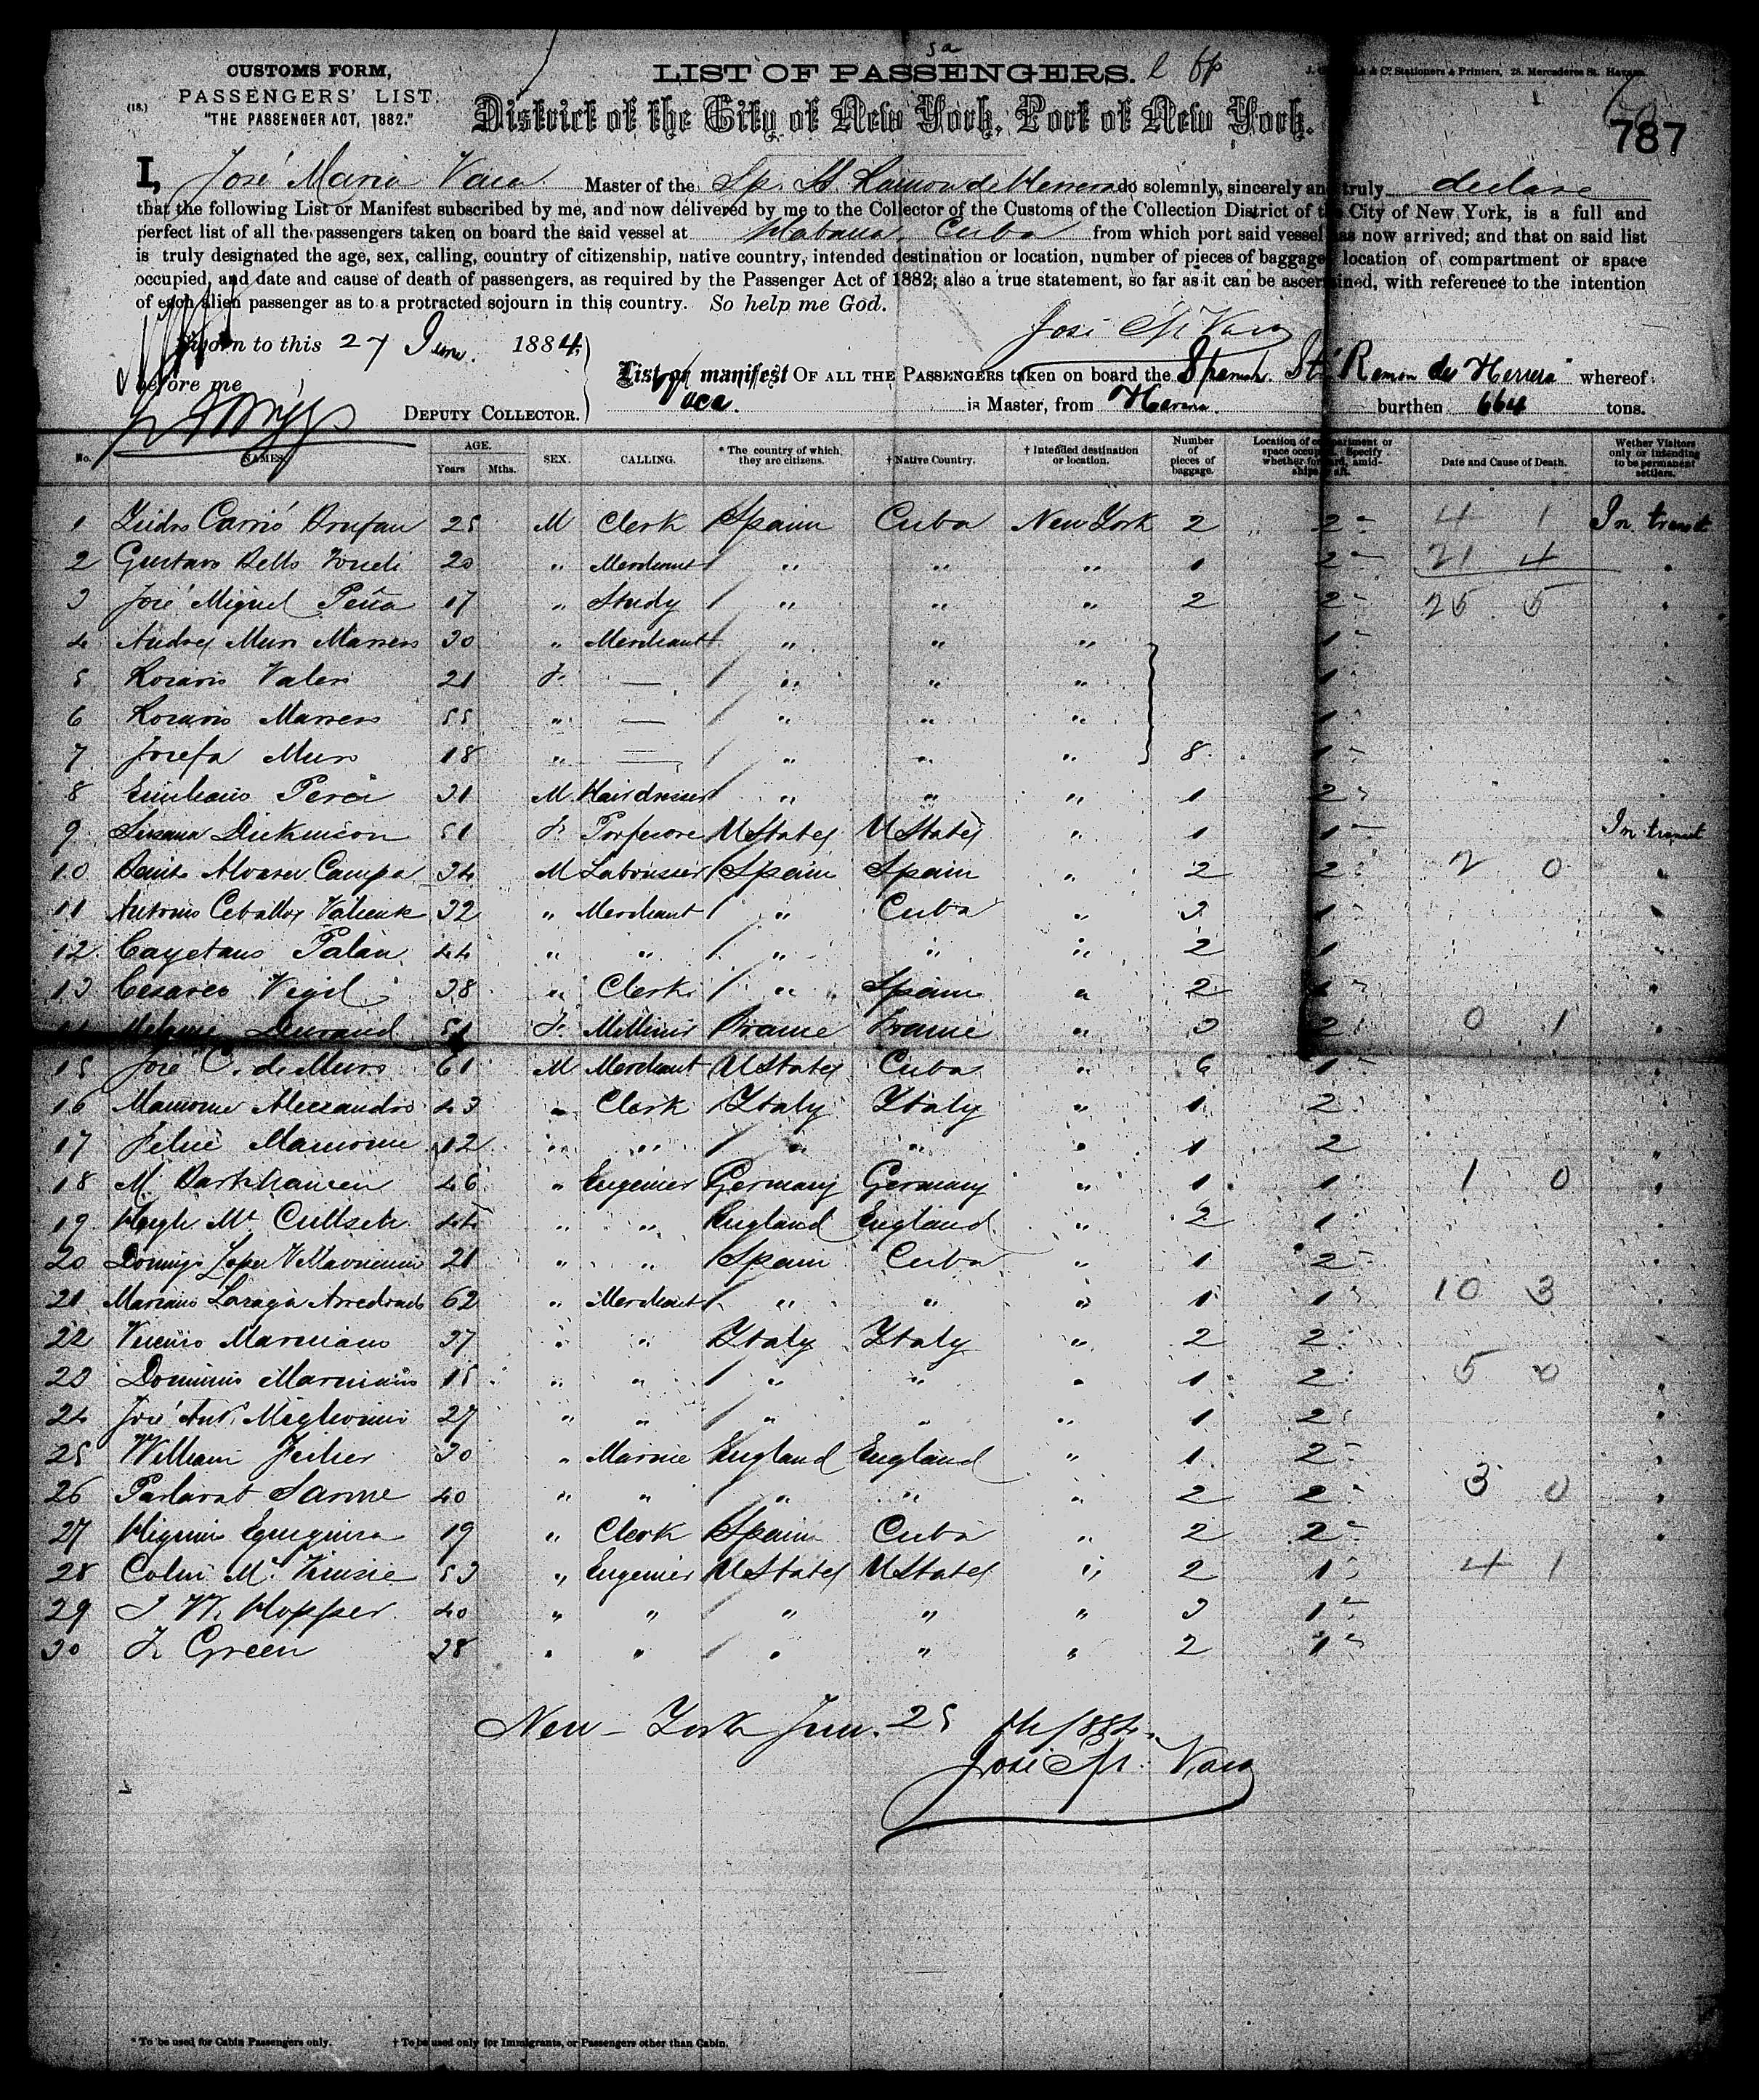 CUSTOMS FORM,
PASSENGERS' LIST.
(18.) "THE PASSENGER ACT, 1882."
LIST OF PASSENGERS.
District of the City of New York, Port of New York.
& Co. Stationers & Printers, 28. Mercaderes St. Havana.
787
I, José Maria Vaca Master of the Sp. St. Ramon de Herrera do solemnly, sincerely and truly declare
that the following List or Manifest subscribed by me, and now delivered by me to the Collector of the Customs of the Collection District of the City of New York, is a full and
perfect list of all the passengers taken on board the said vessel at Habana, Cuba from which port said vessel has now arrived; and that on said list
is truly designated the age, sex, calling, country of citizenship, native country, intended destination or location, number of pieces of baggage, location of compartment or space
occupied, and date and cause of death of passengers, as required by the Passenger Act of 1882; also a true statement, so far as it can be ascertained, with reference to the intention
of each alien passenger as to a protracted sojourn in this country. So help me God.
Sworn to this 27 June 1884 José M. Vaca
before me
DEPUTY COLLECTOR.
List or manifest OF ALL THE PASSENGERS taken on board the Spanish St. "Ramon de Herrera" whereof
Vaca. is Master, from Havana. burthen 664 tons.
No. NAMES. AGE. Years Mths. SEX. CALLING. * The country of which they are citizens. † Native Country. † Intended destination or location. Number of pieces of baggage. Location of compartment or space occupied. Specify whether forward, amidships or aft. Date and Cause of Death. Wether Visitors only or intending to be permanent settlers.
1 Isidro Carrió 25 M Clerk Spain Cuba New York 2 2 4 1 In transit
2 Gustavo Bello 20 " Merchant " " " 1 2 21 4 "
3 José Miguel Peña 17 " Study " " " 2 2 25 5 "
4 Andres Muro Marrero 30 " Merchant " " " 1 "
5 Rosario Valero 21 F. — " " " 1 "
6 Rosario Marrero 55 " — " " " 1 "
7 Josefa Muro 18 " — " " " 8 1 "
8 Emiliano 31 M Hairdresser " " " 1 2
9 Susana Dickinson 51 F. Porfesore U States U States " 1 1 In transit
10 Benito Alvarez Campa 34 M Labousier Spain Spain " 2 2 2 0 "
11 Antonio Ceballos Valiente 32 " Merchant " Cuba " 3 1 "
12 Cayetano Palau 44 " " " " " 2 1 "
13 Cesareo Vigil 38 " Clerk " Spain " 2 1 "
14 Durand 51 F. France France " 3 2 0 1 "
15 José C. de Muro 61 M Merchant U States Cuba " 6 1
16 Mamone Alessandro 43 " Clerk Italy Italy " 1 2
17 Felice Mamone 12 " " " " " 1 2 "
18 M. Barkhausen 46 " Engenier Germany Germany " 1 1 1 0 "
19 Hugh Mc 44 " " England England " 2 1 "
20 Domingo Lopez 21 " " Spain Cuba " 1 2 "
21 Mariano 62 " Merchant " " " 1 1 10 3 "
22 Marciano 37 " " Italy Italy " 2 2
23 Marciano 15 " " " " " 1 2 5 0 "
24 José Ant. 27 " " " " " 1 2 "
25 William 30 " Marine England England " 1 2 "
26 40 " " " " " 2 2 3 0 "
27 Higinio 19 " Clerk Spain Cuba " 2 2 "
28 Colin Mc Kinsie 53 " Engenier U States U States " 2 1 4 1
29 J W. Hopper 40 " " " " " 3 1
30 F. Green 38 " " " " " 2 1
New-York Jun. 25 th/884.
José M. Vaca
* To be used for Cabin Passengers only. † To be used only for Immigrants, or Passengers other than Cabin.